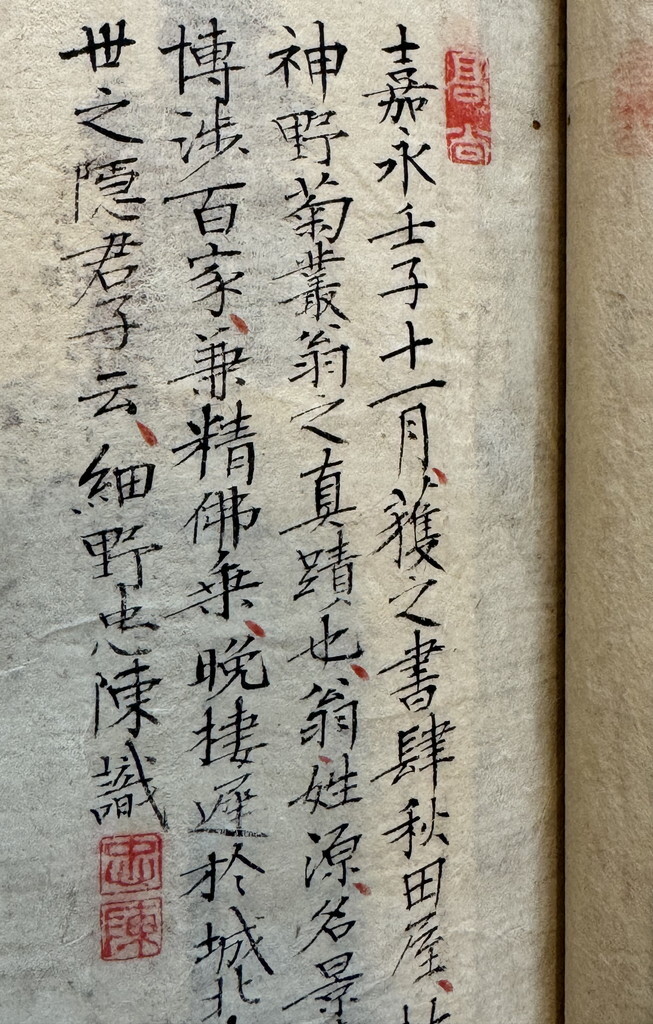 高尚
嘉永壬子十一月、獲之書肆秋田屋、
神野菊叢翁之真蹟也、翁姓源、名景
博渉百家、兼精佛乗、晩棲遲於城北
世之隠君子云、細野忠陳識
忠陳